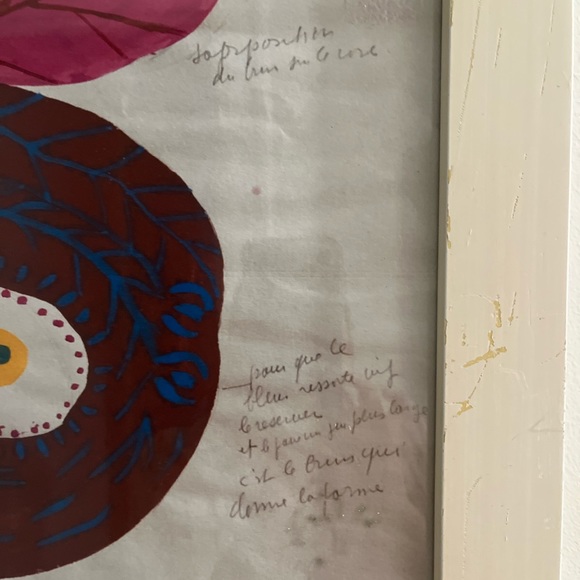 surposition
du brun sur le rose
pour que le
bleu ressorte vif
le reserver
et le faire un peu plus large
c'est le brun qui
donne la forme